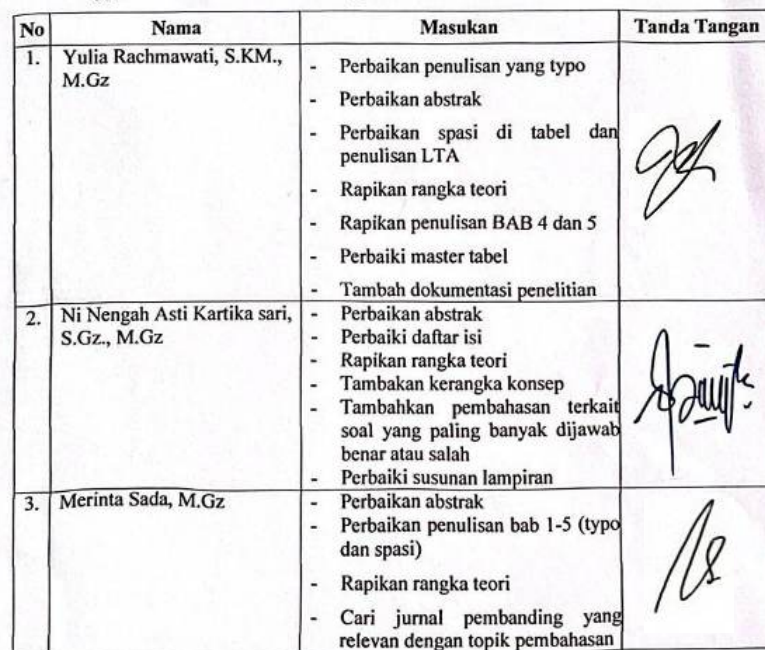 No Nama Masukan Tanda Tangan
1. Yulia Rachmawati, S.KM.,
M.Gz
- Perbaikan penulisan yang typo
- Perbaikan abstrak
- Perbaikan spasi di tabel dan
penulisan LTA
- Rapikan rangka teori
- Rapikan penulisan BAB 4 dan 5
- Perbaiki master tabel
- Tambah dokumentasi penelitian
2. Ni Nengah Asti Kartika sari,
S.Gz., M.Gz
- Perbaikan abstrak
- Perbaiki daftar isi
- Rapikan rangka teori
- Tambakan kerangka konsep
- Tambahkan pembahasan terkait
soal yang paling banyak dijawab
benar atau salah
- Perbaiki susunan lampiran
3. Merinta Sada, M.Gz
- Perbaikan abstrak
- Perbaikan penulisan bab 1-5 (typo
dan spasi)
- Rapikan rangka teori
- Cari jurnal pembanding yang
relevan dengan topik pembahasan